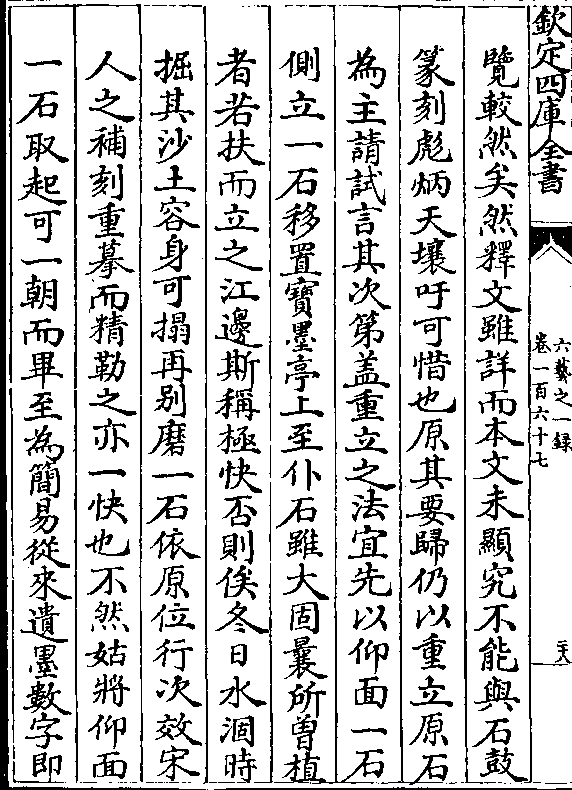 欽定四庫全書
六藝之一録
卷一百六十七
二十八
覽較然矣然釋文雖詳而本文未顯究不能與石鼓
篆刻彪炳天壤吁可惜也原其要歸仍以重立原石
為主請試言其次第盖重立之法宜先以仰面一石
側立一石移置寶墨亭上至仆石雖大固曩所曾植
者若扶而立之江邊斯稱極快否則俟冬日水涸時
掘其沙土容身可搨再别磨一石依原位行次效宋
人之補刻重摹而精勒之亦一快也不然姑將仰面
一石取起可一朝而畢至為簡易從來遺墨數字即